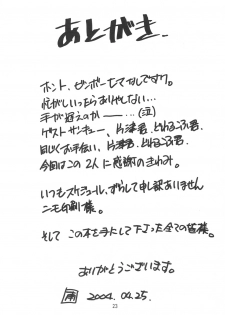 あとがき
ホント、ビンボーひマなしです。
忙がしいったらありゃしない…
手が遅えのか――…(泣)
ゲストサンキュー、片津君、
同じくお手伝い、片津君、
今回はこの2人に感謝のきわみ。
いつもスケジュールずらして申し訳ありません
ニモ印刷様。
そして この本を手にして下さった全ての皆様。
ありがとうございます。
2004.04.25.
23